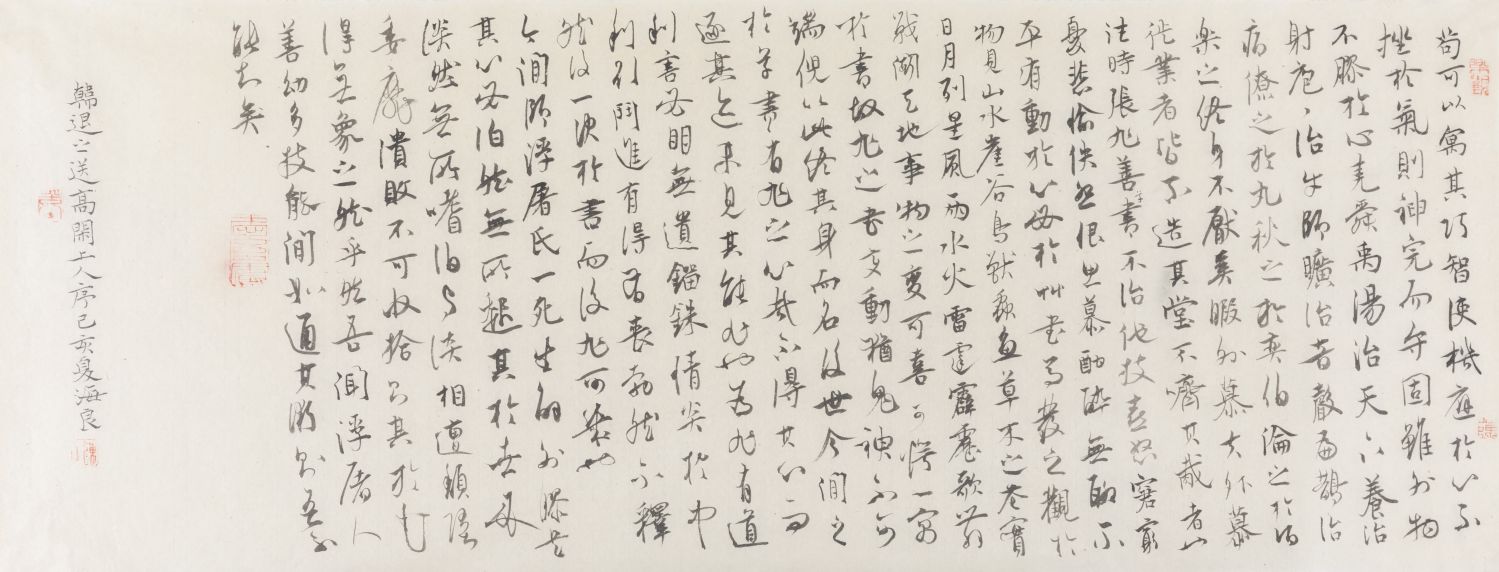 苟可以寓其巧智使機應於心不
挫於氣則神完而守固雖外物
不膠於心堯舜禹湯治天下養治
射庖丁治牛師曠治音聲扁鵲治
病僚之於丸秋之於奕伯倫之於酒
樂之終身不厭奚暇外慕夫外慕
徙業者皆不造其堂不嚌其胾者也
往時張旭善草書不治他技喜怒窘窮
憂悲愉佚怨恨思慕酣醉無聊不
平有動於心必於草書焉發之觀於
物見山水崖谷鳥獸蟲魚草木之花實
日月列星風雨水火雷霆霹靂歌舞
戰鬭天地事物之變可喜可愕一寓
於書故旭之書變動猶鬼神不可
端倪以此終其身而名後世今閒之
於草書有旭之心哉不得其心而
逐其迹未見其能旭也為旭有道
利害必明無遺錙銖情炎於中
利欲鬥進有得有喪勃然不釋
然後一決於書而後旭可幾也
今閒師浮屠氏一死生解外膠是
其心必泊然無所起其於世必
淡然無所嗜泊與淡相遭頹墮
委靡潰敗不可收拾則其於書
得無象之然乎然吾聞浮屠人
善幻多技能閒如通其術則吾不
能知矣
韓退之送高閑上人序己亥夏海良